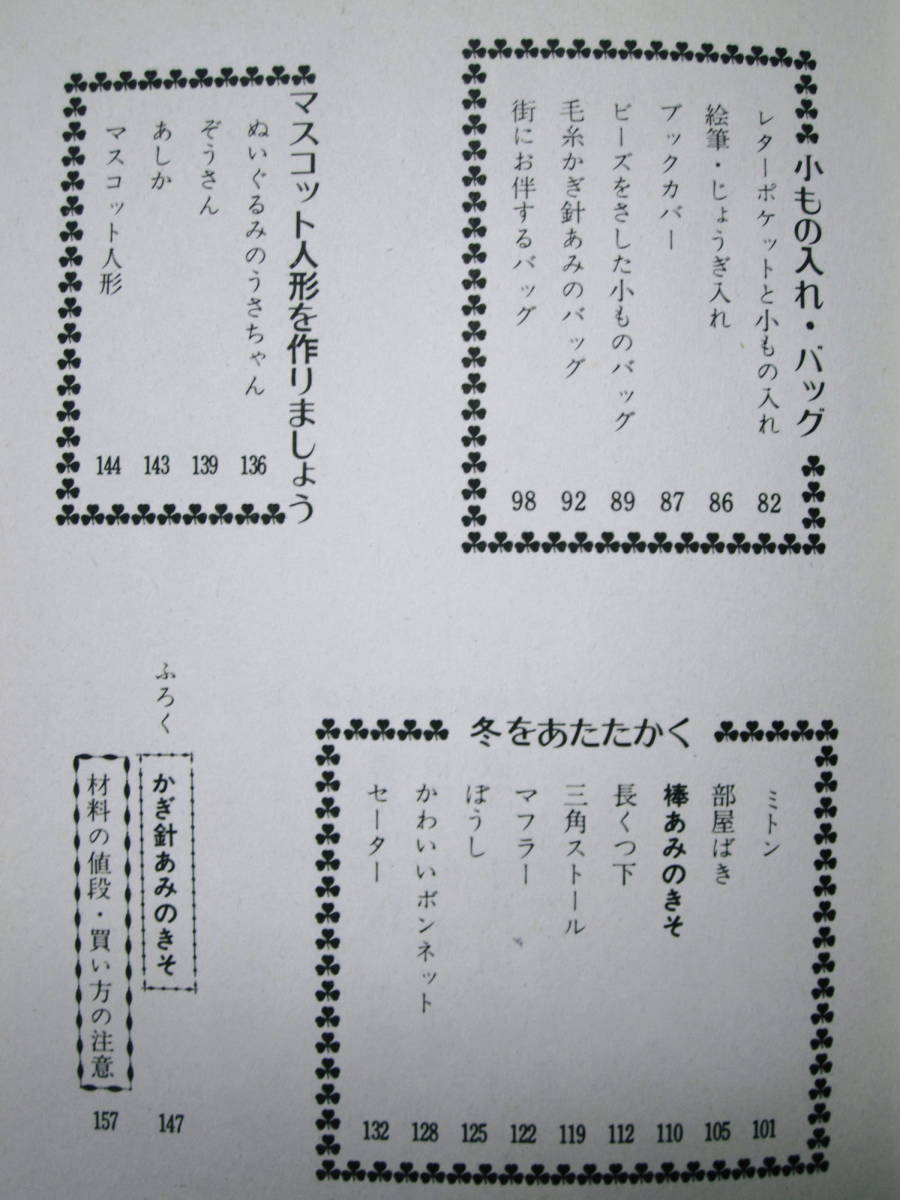 小もの入れ・バッグ
レターポケットと小もの入れ 82
絵筆・じょうぎ入れ 86
ブックカバー 87
ビーズをさした小ものバッグ 89
毛糸かぎ針あみのバッグ 92
街にお伴するバッグ 98
マスコット人形を作りましょう
ぬいぐるみのうさちゃん 136
ぞうさん 139
あしか 143
マスコット人形 144
冬をあたたかく
ミトン 101
部屋ばき 105
棒あみのきそ 110
長くつ下 112
三角ストール 119
マフラー 122
ぼうし 125
かわいいボンネット 128
セーター 132
ふろく
かぎ針あみのきそ 147
材料の値段・買い方の注意 157